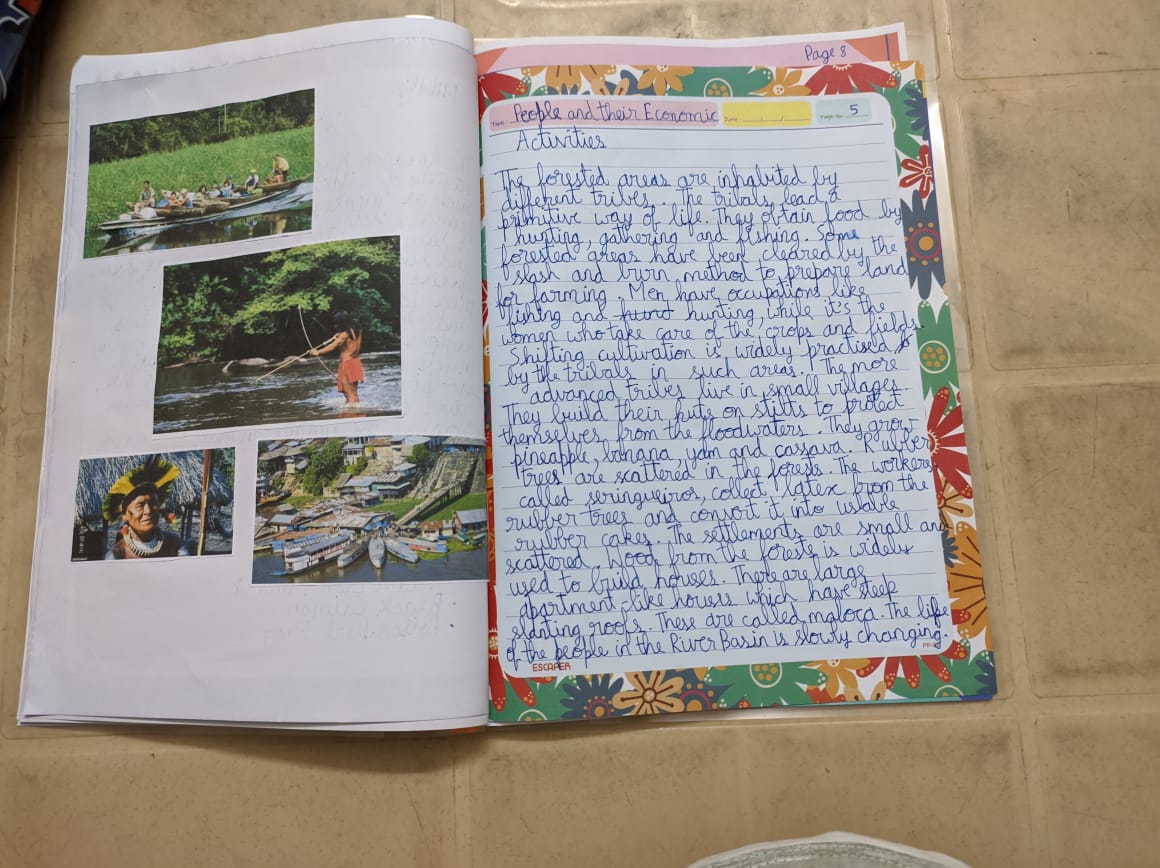 Page 8
Topic: People and their Economic
Date: / /
Page No. 5
Activities
The forested areas are inhabited by
different tribes. The tribals lead a
primitive way of life. They obtain food by
hunting, gathering and fishing. Some
forested areas have been cleared by the
slash and burn method to prepare land
for farming. Men have occupations like
fishing and hunting, while it's the
women who take care of the crops and fields.
Shifting cultivation is widely practised
by the tribals in such areas. The more
advanced tribes live in small villages.
They build their huts on stilts to protect
themselves from the floodwaters. They grow
pineapple, banana, yam and cassava. Rubber
trees are scattered in the forests. The workers
called seringueiros, collect latex from the
rubber trees and convert it into usable
rubber cakes. The settlements are small and
scattered. Wood from the forests is widely
used to build houses. There are large
apartment-like houses which have steep
slanting roofs. These are called maloca. The life
of the people in the River Basin is slowly changing.
ESCAPER